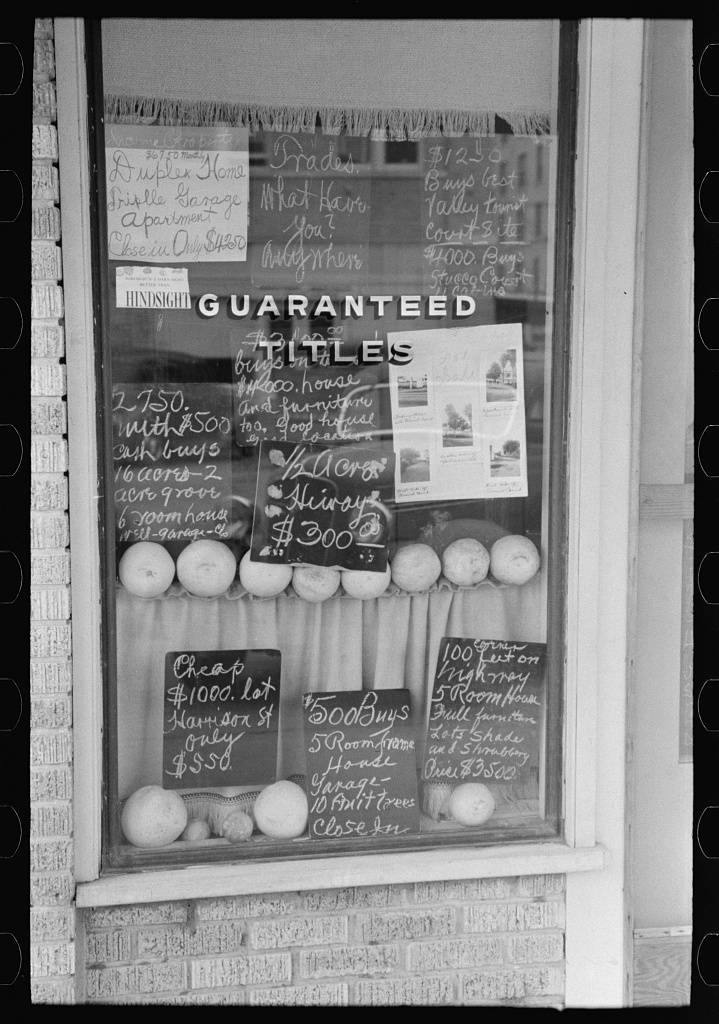 Income Property
$67.50 Monthly
Duplex Home
Triplle Garage
apartment
Close in Only $4250
Trades.
What Have
You?
Anywhere
$1250
Buys best
Valley tourist
Court Site
$4000. Buys
Stucco Court
BETTER THAN
HINDSIGHT
GUARANTEED
TITLES
buys
$4000. house
and furniture
too. Good house
good location
2750.
with $500
cash buys
16 acres-2
acre grove
6 room house
Well-garage-
1/2 Acre
Hiway
$300.00
Cheap
$1000. lot
Harrison St
only
$550.
$500 Buys
5 Room frame
House
Garage-
10 Fruit trees
Close In
corner
100 feet on
highway
5 Room House
Full furniture
Lots Shade
and Shrubbery
Price $3500